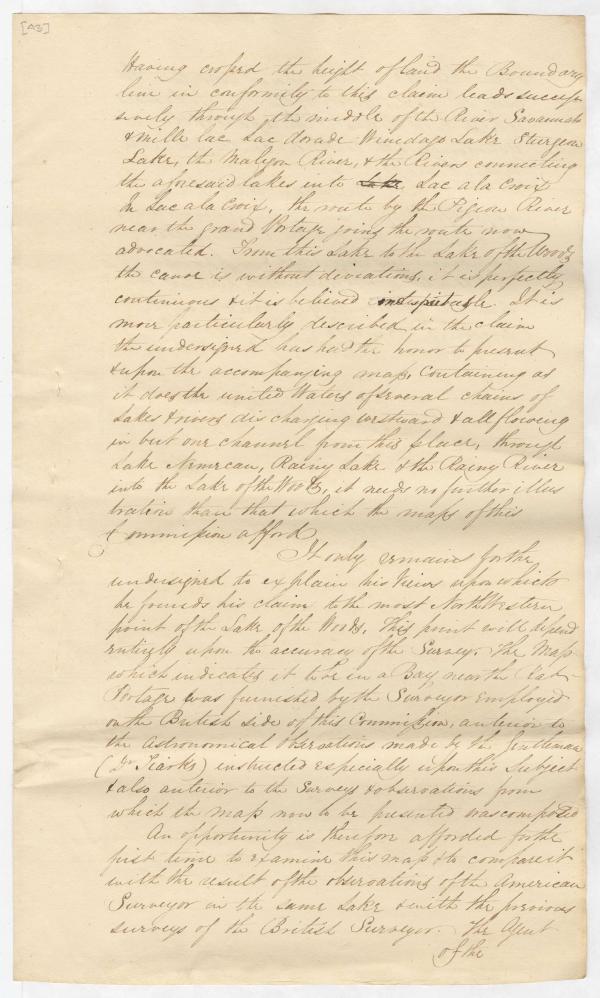 [A3]
Having crossed the height of land the Boundary
line in conformity to this claim leads succes
sively through the middle of the River Savannah
& mille lac Lac dorade Winedago Lake Sturgeon
Lake, the Maligon River, & the Rivers connecting
the aforesaid lakes into Lake Lac a la Croix
In Lac a la Croix, the route by the Pigeon River
near the grand Portage joins the route now
advocated. From this Lake to the Lake of the Woods
the canoe is without deviations, it is perfectly
continuous & it is believed indisputable. It is
more particularly described in the claim
the undersigned has had the honor to present
& upon the accompanying map, Containing as
it does the united Waters of several chains of
Lakes & rivers discharging westward & all flowing
in but one channel from this place, through
Lake Nemecan, Rainy Lake & the Rainy River
into the Lake of the Woods, it needs no further illus
tration than that which the maps of this
Commission afford.
It only remains for the
undersigned to explain his Views upon which
he founds his claim to the most North Western
point of the Lake of the Woods. This point will depend
entirely upon the accuracy of the Survey. The Map
which indicates it to be in a Bay near the Rat
Portage was furnished by the Surveyor employed
on the British side of this Commission, anterior to
the Astronomical Observations made by the Gentleman
(Dr Tiarks) instructed especially upon this Subject
& also anterior to the Surveys & observations from
which the map now to be presented was composed
An opportunity is therefore afforded for the
first time to examine this map & to compare it
with the result of the observations of the American
Surveyor in the same Lake & with the previous
surveys of the British Surveyor. The Agent
of the